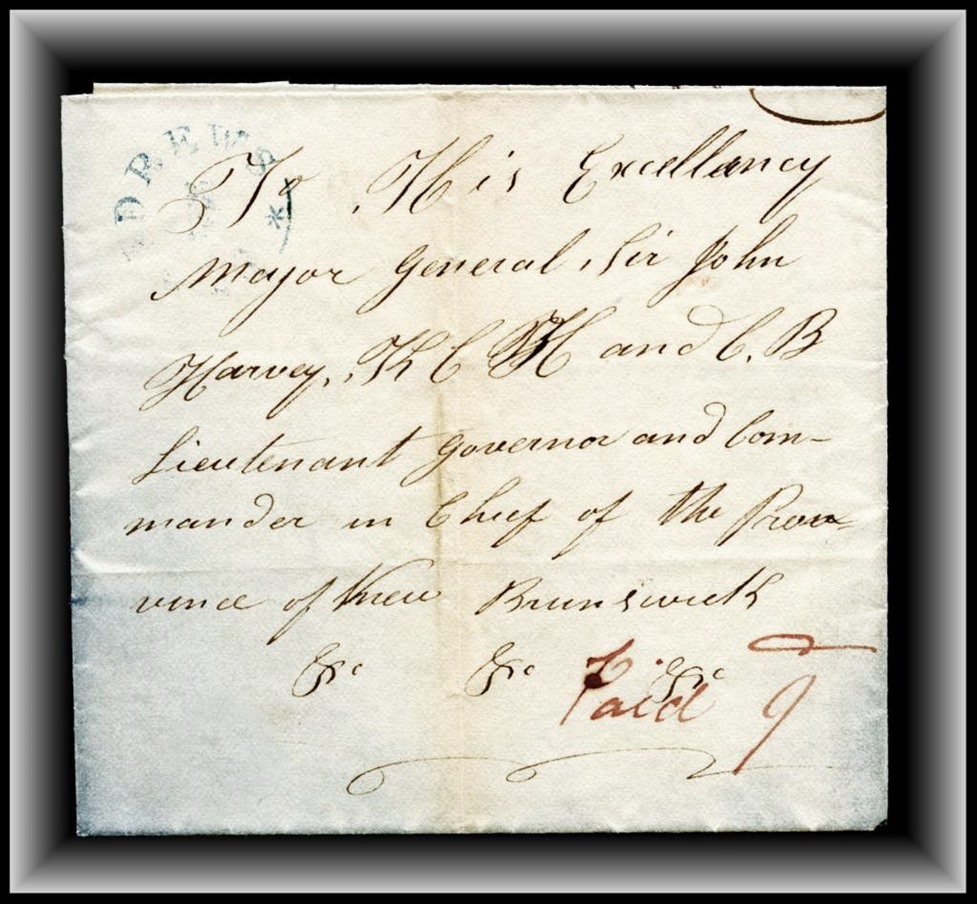 DREWS
To His Excellancy
Major General Sir John
Harvey, K C H and C. B
Lieutenant Governor and Com-
mander in Chief of the Prov-
vince of New Brunswick
&c &c &c
Paid 9